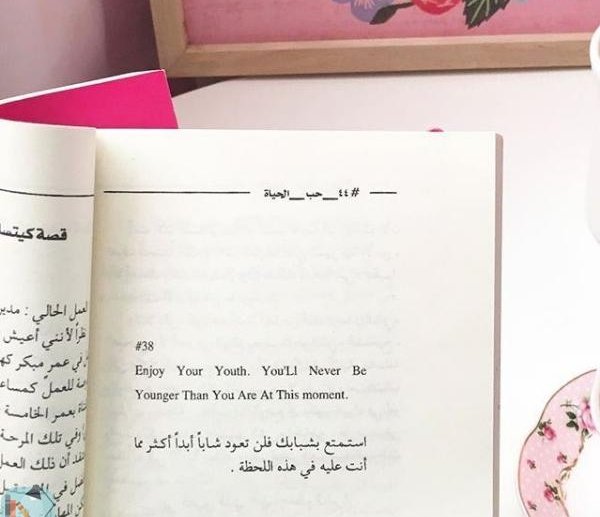 #٤٤__حب__الحياة
قصة كيتسا
#38
Enjoy Your Youth. You'Ll Never Be
Younger Than You Are At This moment.
استمتع بشبابك فلن تعود شاباً أبداً أكثر مما
أنت عليه في هذه اللحظة .
العمل الحالي : مدير
نظراً لأنني أعيش
في عمر مبكر
للعمل كمساء
بعمر الخامسة
وفي تلك المرحلة
أن ذلك العمل